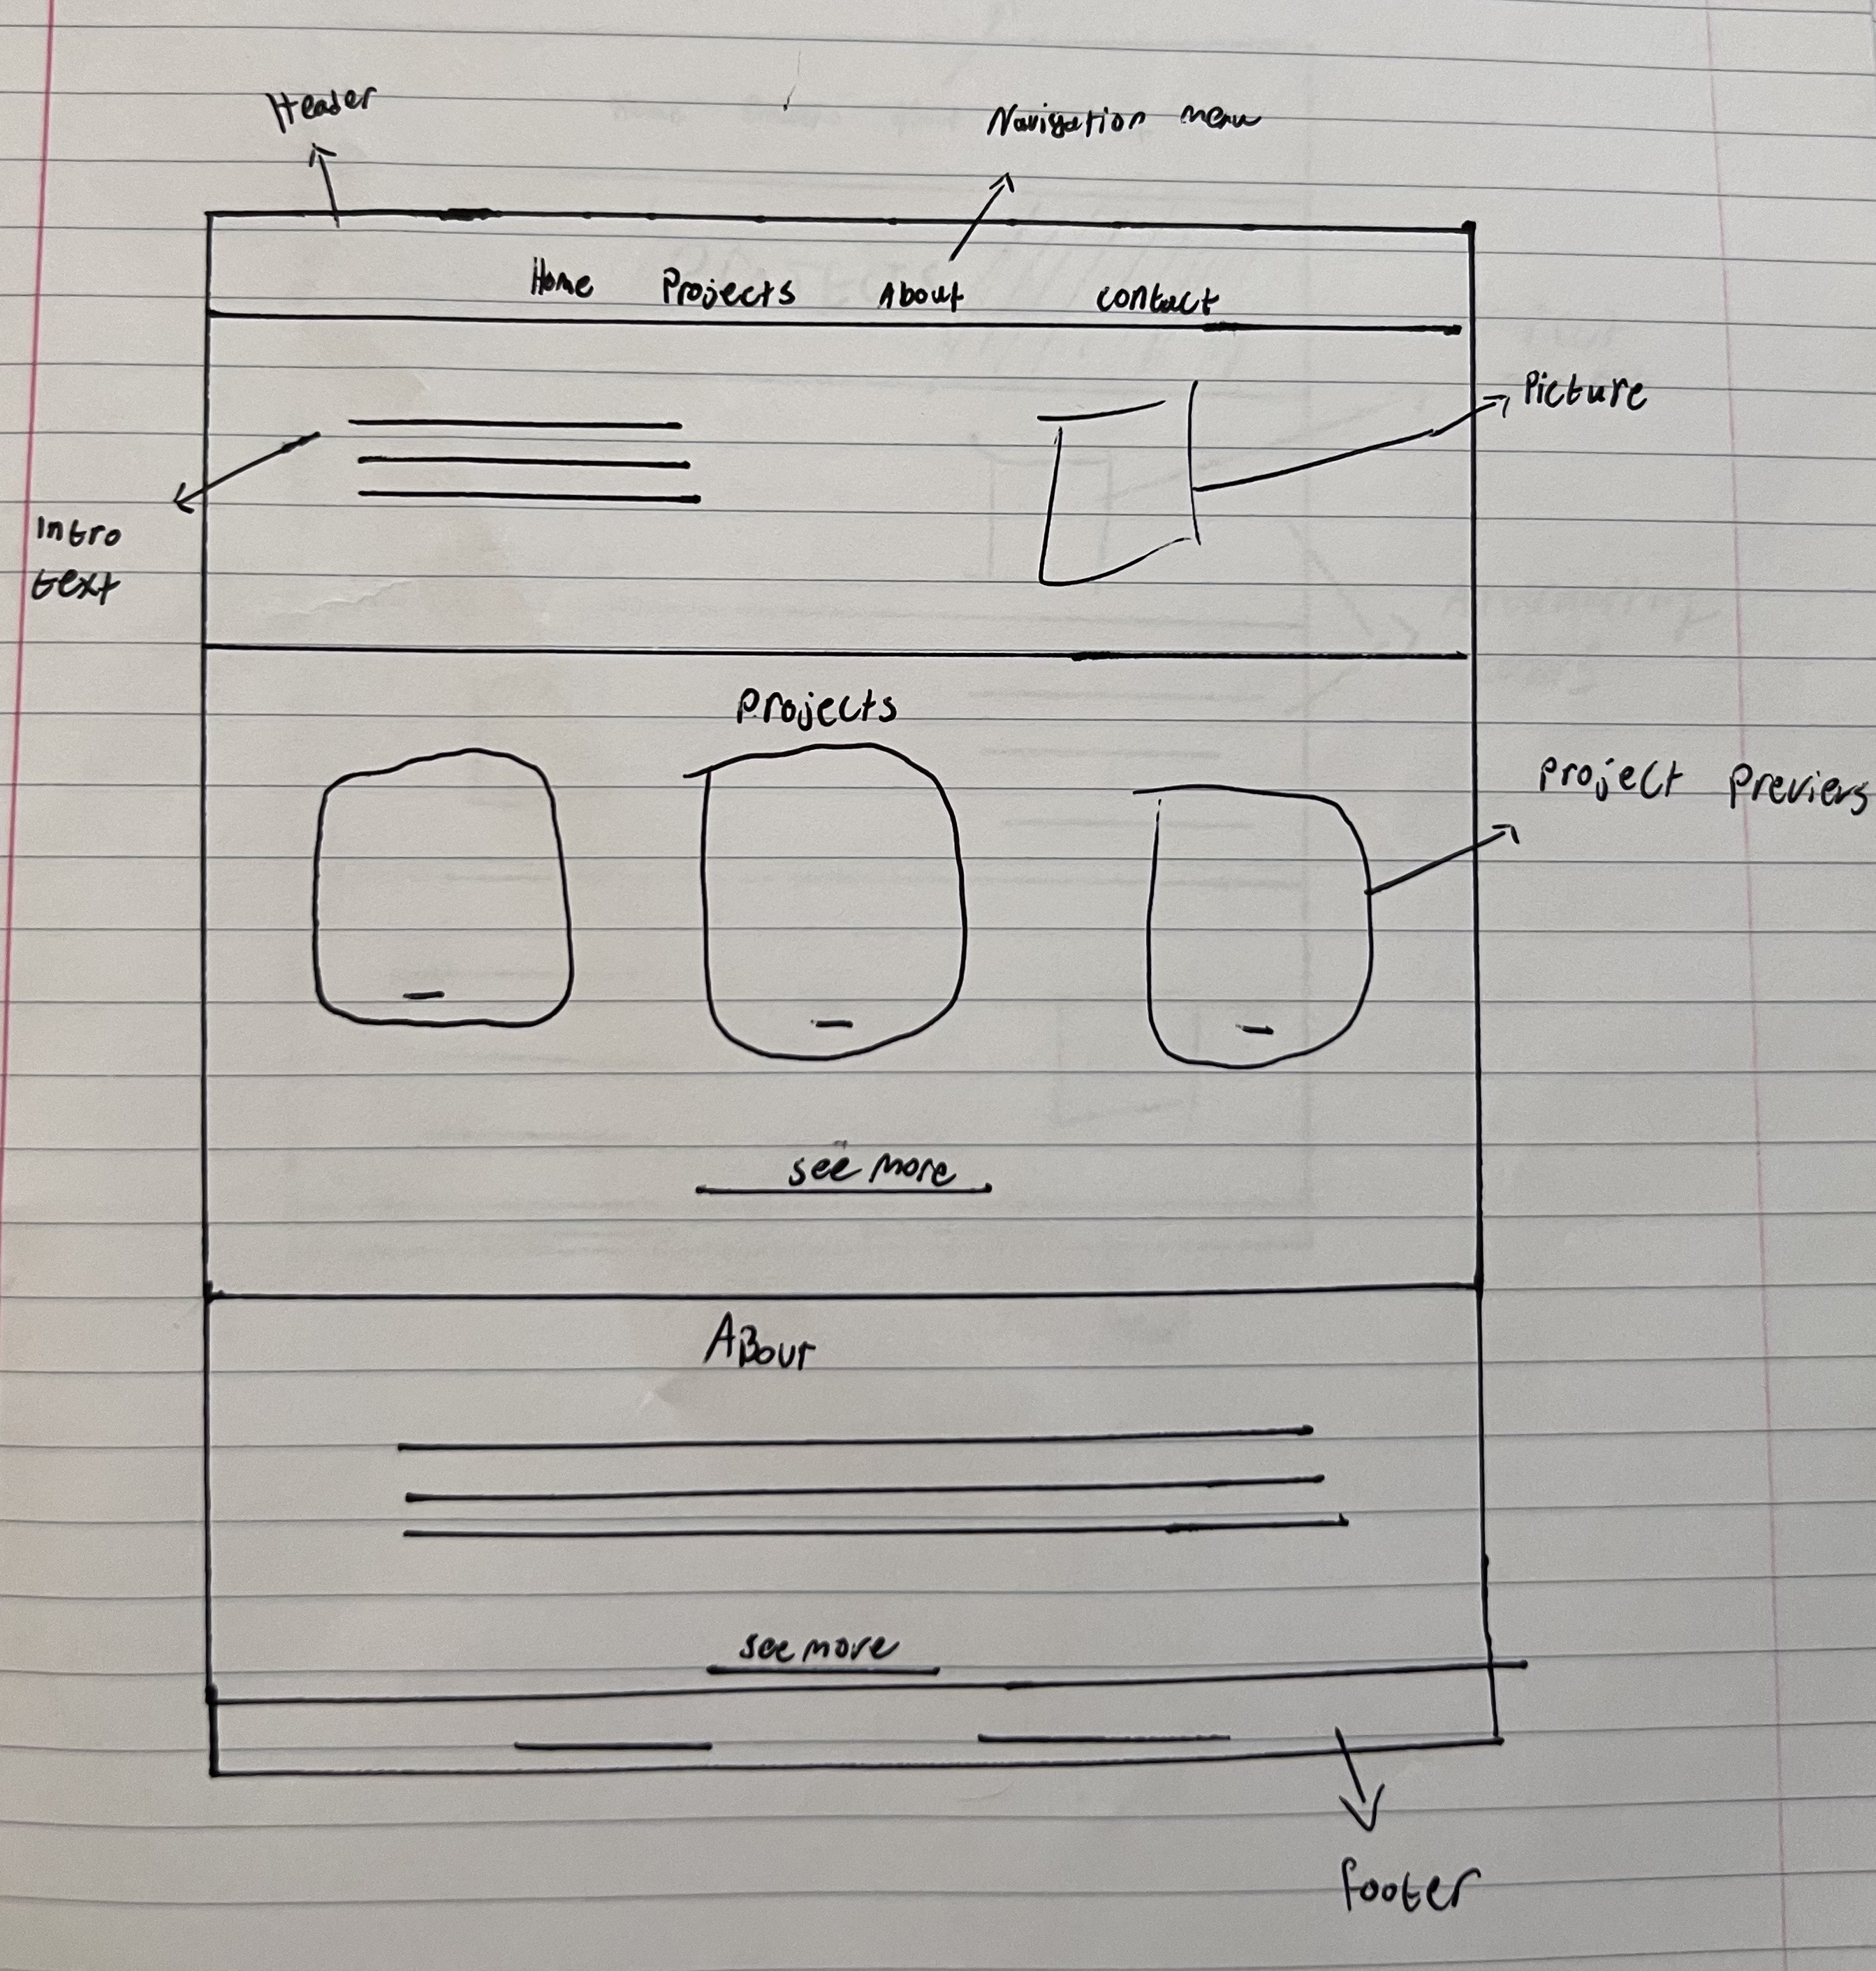 Header
Navigation menu
Home Projects About contact
Picture
Intro
text
Projects
Project Previers
see more
ABout
see more
footer